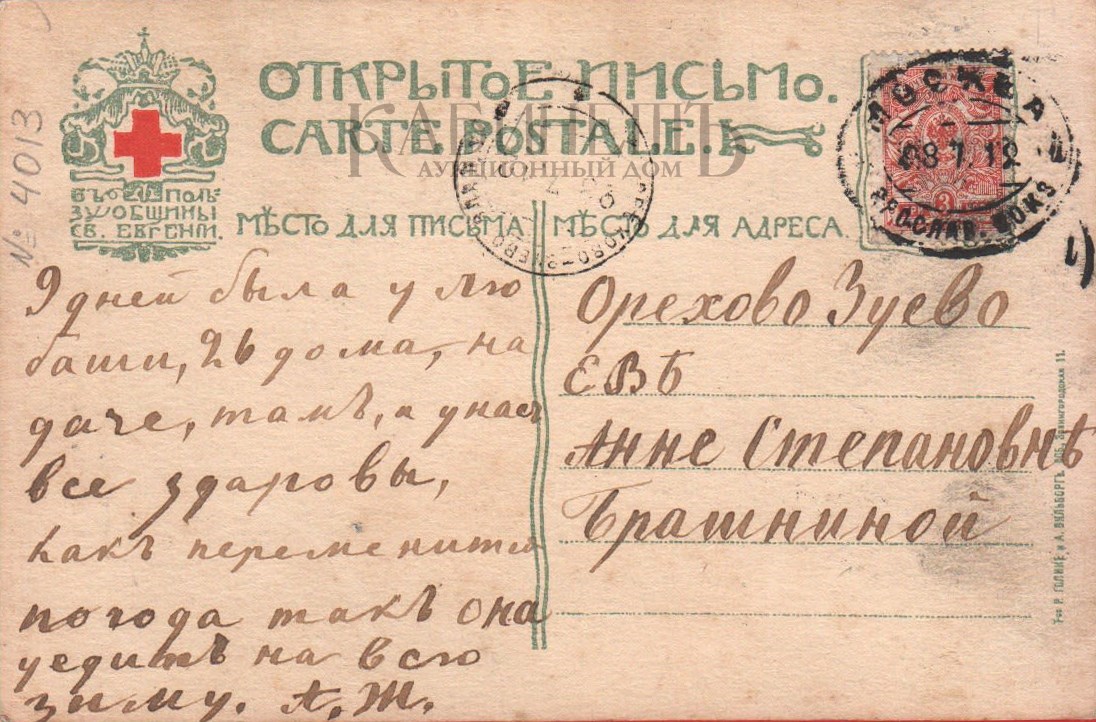 № 4013
ВЪ ПОЛЬ-
ЗУ ОБЩИНЫ
СВ. ЕВГЕНІИ.
ОТКРЫТОЕ ПИСЬМО.
CARTE POSTALE.
КАБИНЕТЪ
АУКЦИОННЫЙ ДОМ
МѢСТО ДЛЯ ПИСЬМА
МѢСТО ДЛЯ АДРЕСА.
МОСКВА
ЯРОСЛАВ. ВОКЗ
3
9 дней была у Лю
баши, 26 дома, на
даче, тамъ, а у нас
все здаровы,
какъ переменится
погода такъ она
уедитъ на всю
зиму. А.Ж.
Орехово Зуево
ЕВѢ
Анне Степановнѣ
Брашниной
Р. ГОЛИКЕ и А. ВИЛЬБОРГЪ. СПБ. Звенигородская 11.